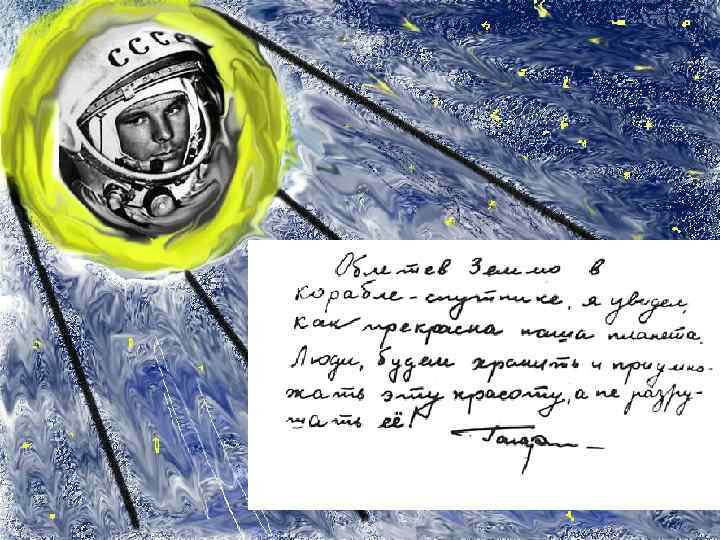 СССР
Облетев Землю в
корабле-спутнике, я увидел,
как прекрасна наша планета.
Люди, будем хранить и приумно-
жать эту красоту, а не разру-
шать её!
Гагарин